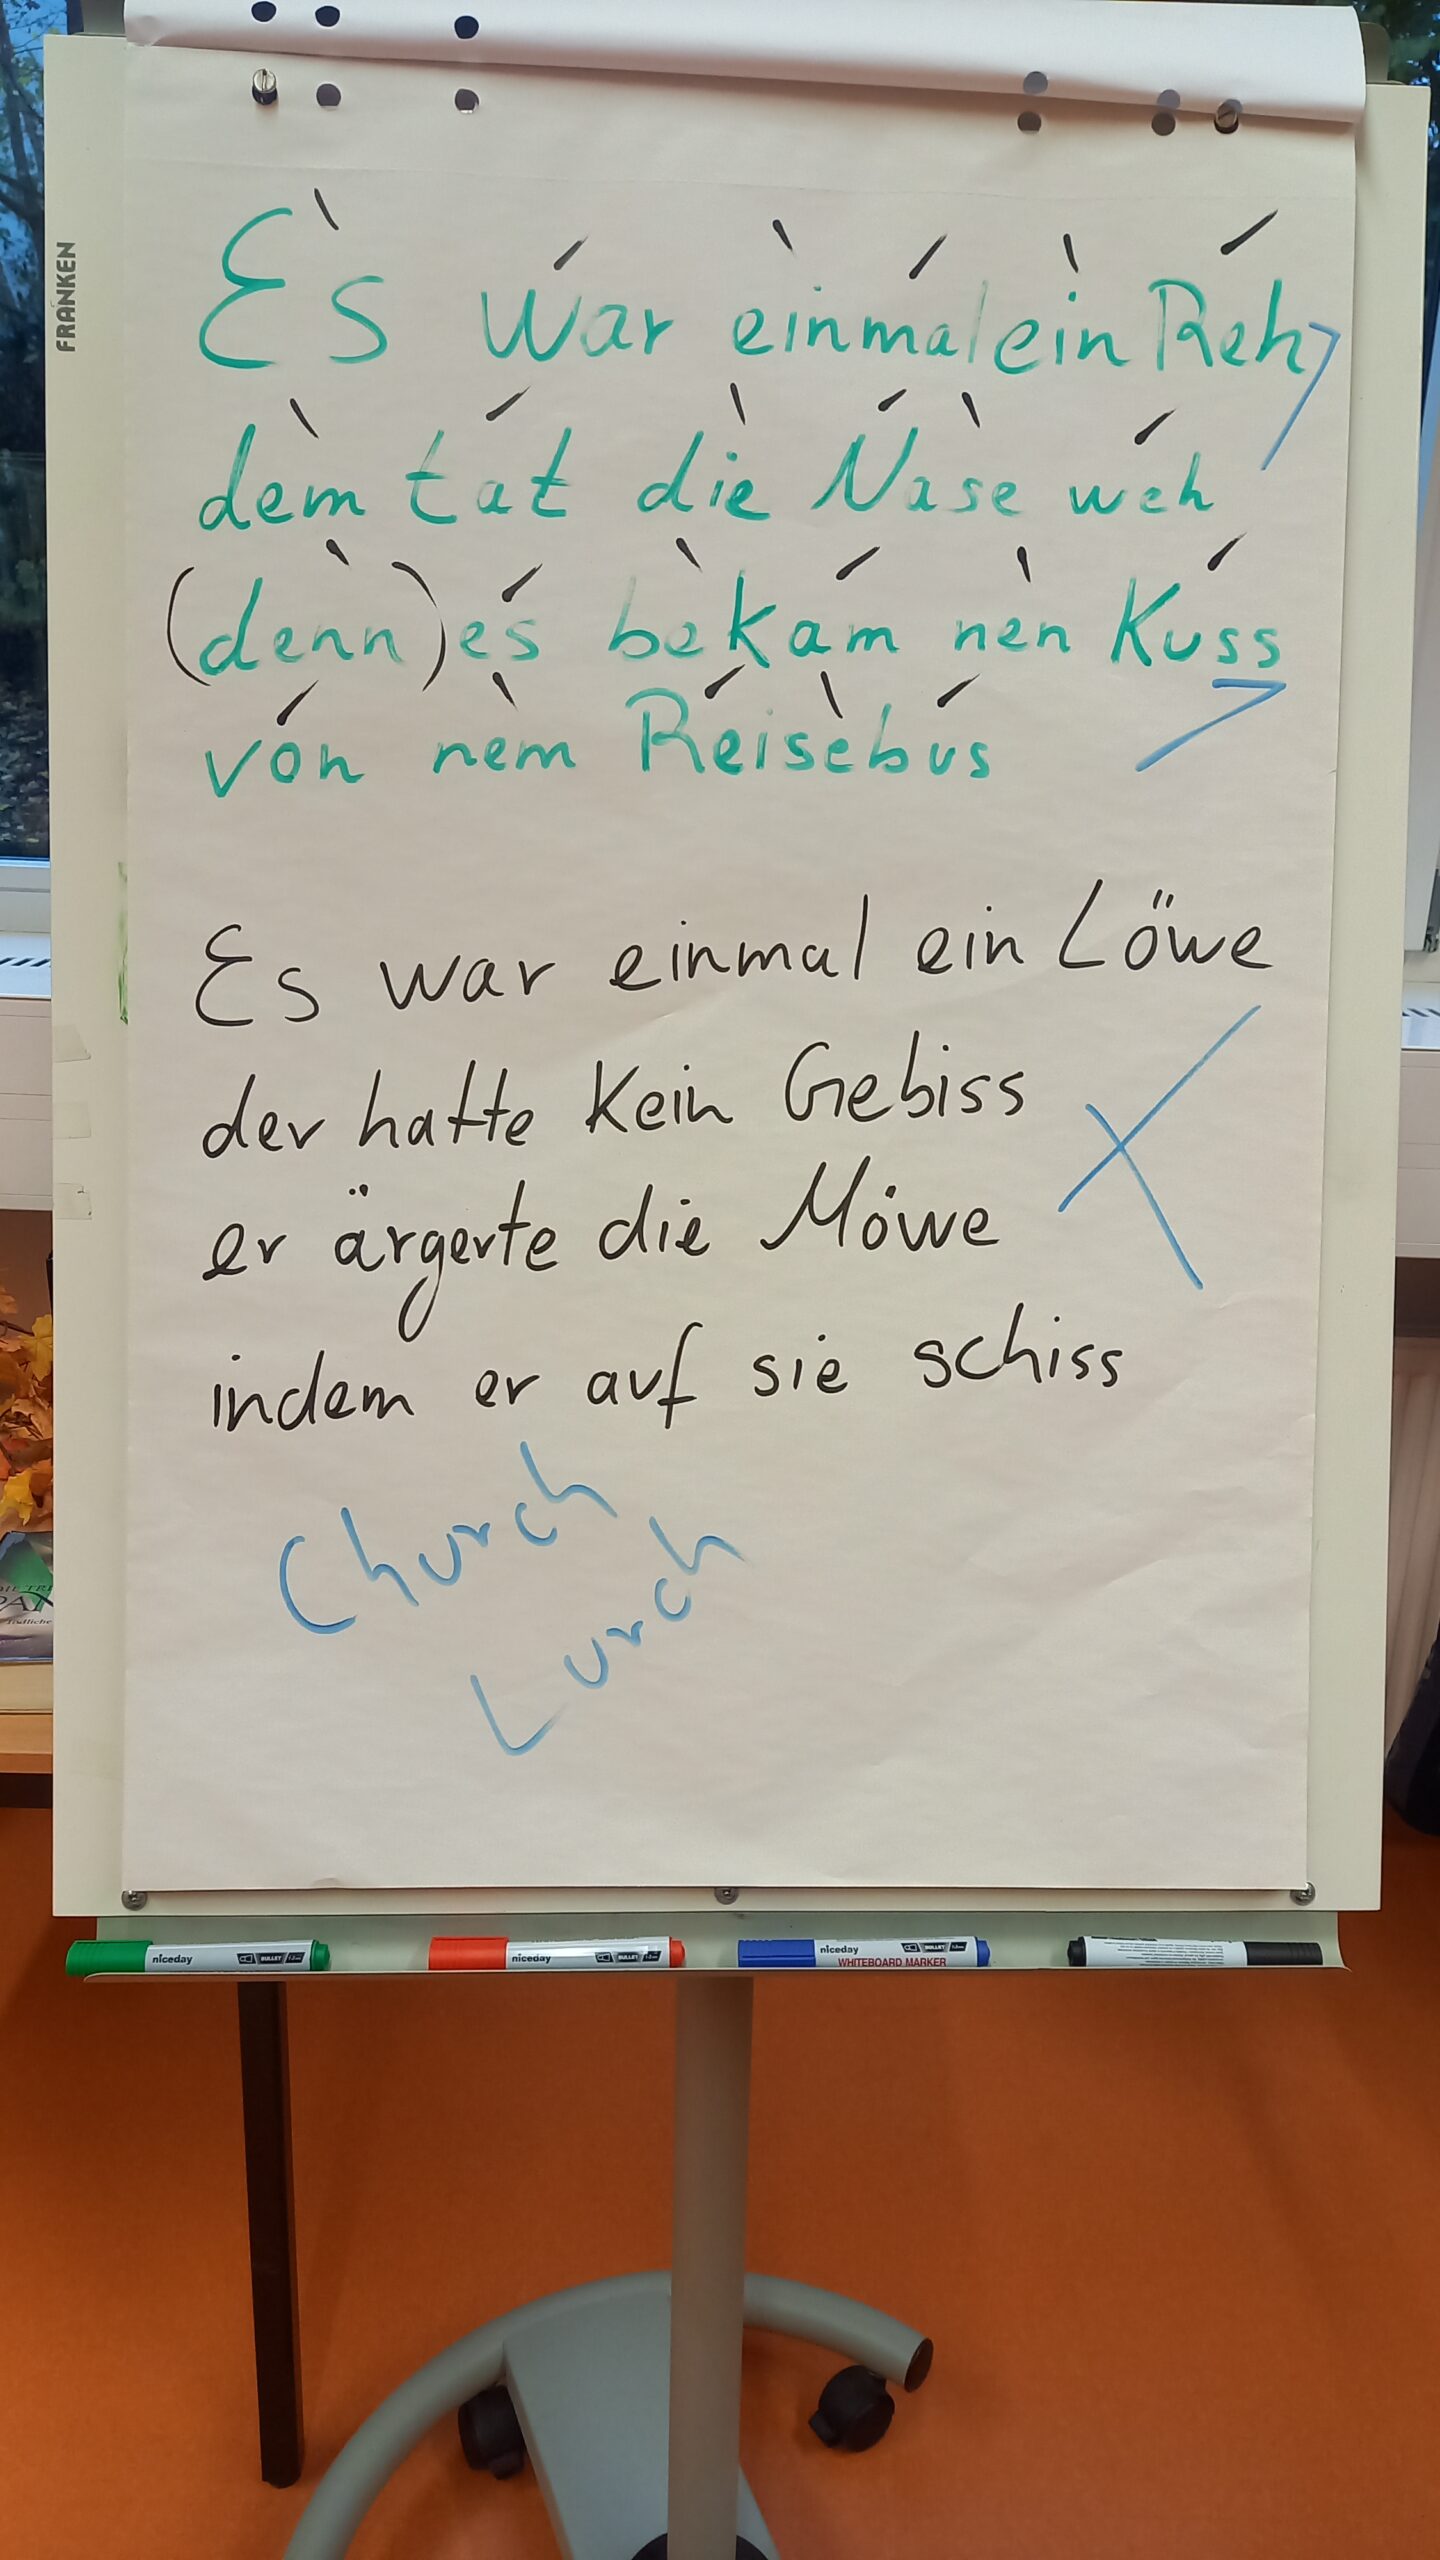 FRANKEN
Es war einmal ein Reh
dem tat die Nase weh
(denn) es bekam nen Kuss
von nem Reisebus
Es war einmal ein Löwe
der hatte kein Gebiss
er ärgerte die Möwe
indem er auf sie schiss
Church
Lurch
niceday BULLET
niceday BULLET
niceday BULLET
WHITEBOARD MARKER